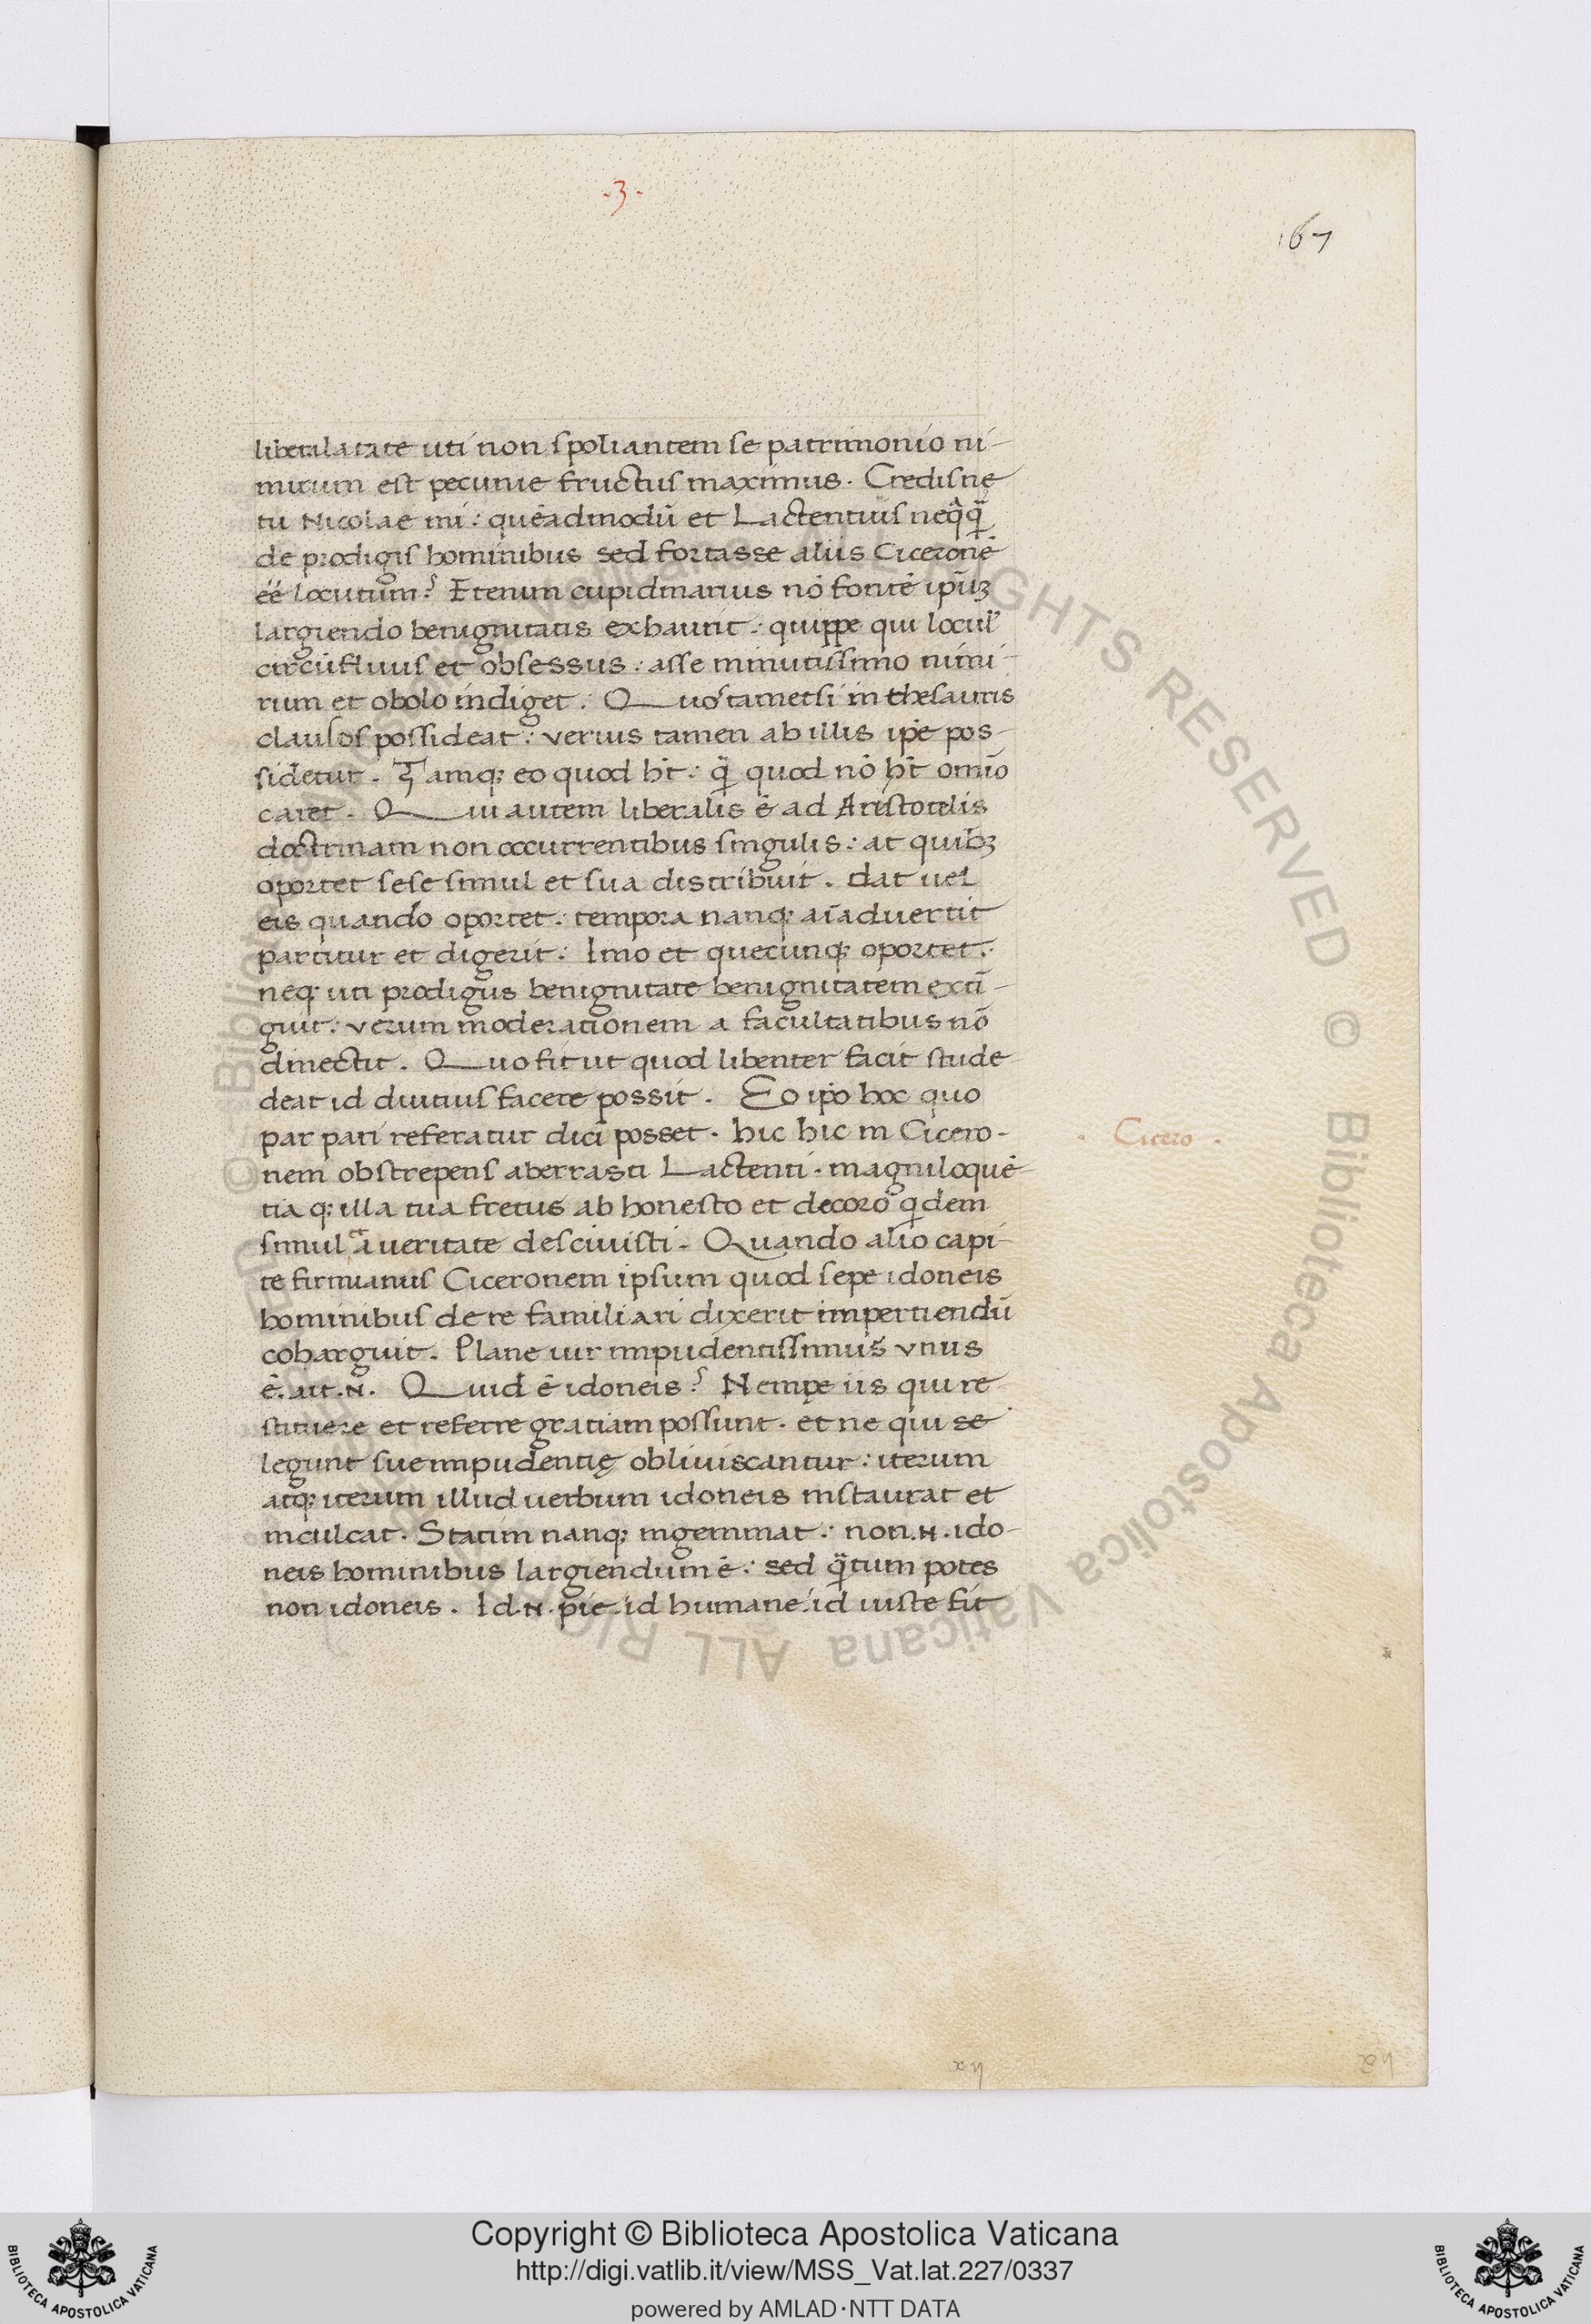 .3.
167
liberalitate uti non spoliantem se patrimonio ni-
mirum est pecunie fructus maximus. Credisne
tu Nicolae mi: quēadmodū et Lactentius neq̄q̄
de prodigis hominibus sed fortasse aliis Ciceronē
eē locutum? Etenim cupidinarius nō fontē ip̄uꝫ
largiendo benignitatis exhaurit: quippe qui locul'
circūfluus et obsessus: asse minutissimo nimi-
rum et obolo indiget: Quos tametsi in thesauris
clausos possideat: verius tamen ab illis ip̄e pos-
sidetur. Tamq; eo quod hт̄: q̄ quod nō hт̄ omīo
caret. Qui autem liberalis ē ad Aristotelis
doctrinam non occurrentibus singulis: at quibꝫ
oportet sese simul et sua distribuit. dat uel
eis quando oportet: tempora nanq; aīaduertit
partitur et digerit: Imo et quecunq; oportet:
neq; uti prodigus benignitate benignitatem extī-
guit: verum moderationem a facultatibus nō
dinectit. Quo fit ut quod libenter facit stude
deat id diutius facere possit. Eo ip̄o hoc quo
par pari referatur dici posset. hic hic in Cicero-
. Cicero .
nem obstrepens aberrasti Lactenti. magniloquē
tia q; illa tua fretus ab honesto et decoro q̇dem
simul a ueritate desciuisti. Quando alio capi-
te firmianus Ciceronem ipsum quod sepe idoneis
hominibus de re familiari dixerit impertiendū
coharguit. Plane uir impudentissimus vnus
ē. ait .N. Quid ē idoneis? Nempe iis qui re-
stituere et referre gratiam possunt. et ne qui se
legunt sue impudentię obliuiscantur: iterum
atq; iterum illud uerbum idoneis instaurat et
inculcat. Statim nanq; ingeminat: non .N. ido-
neis hominibus largiendum ē: sed q̄tum potes
non idoneis. Id .N. pie: id humane: id iuste fit
Copyright © Biblioteca Apostolica Vaticana
http://digi.vatlib.it/view/MSS_Vat.lat.227/0337
powered by AMLAD·NTT DATA